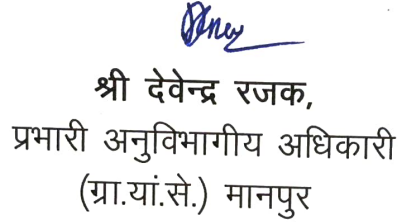 श्री देवेन्द्र रजक,
प्रभारी अनुविभागीय अधिकारी
(ग्रा.यां.से.) मानपुर